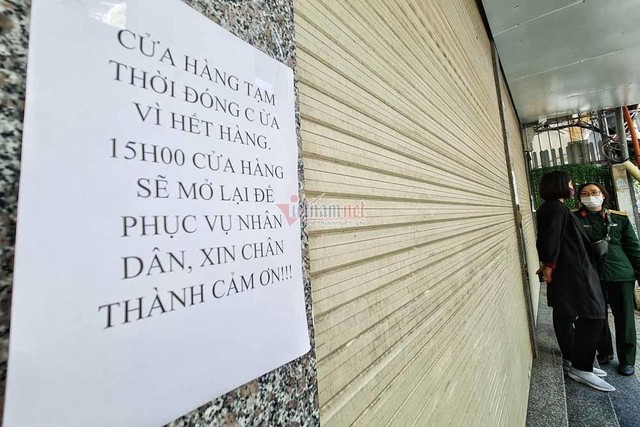 CỬA HÀNG TẠM
THỜI ĐÓNG C ỬA
VÌ HẾT HÀNG.
15H00 CỬA HÀNG
SẼ MỞ LẠI ĐỂ
PHỤC VỤ NHÂN
DÂN, XIN CHÂN
THÀNH CẢM ƠN!!!
Vietnamnet